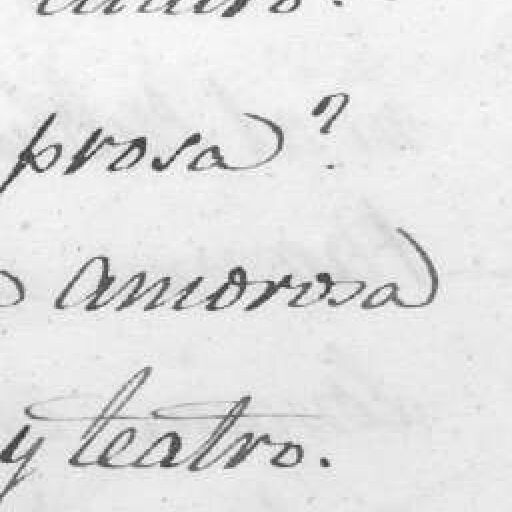 prosa?
amorosa
y teatro.